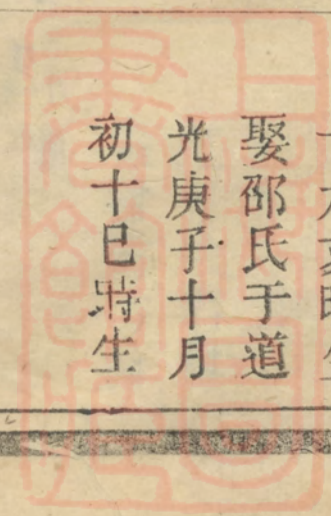 娶邵氏于道
光庚子十月
初十巳時生